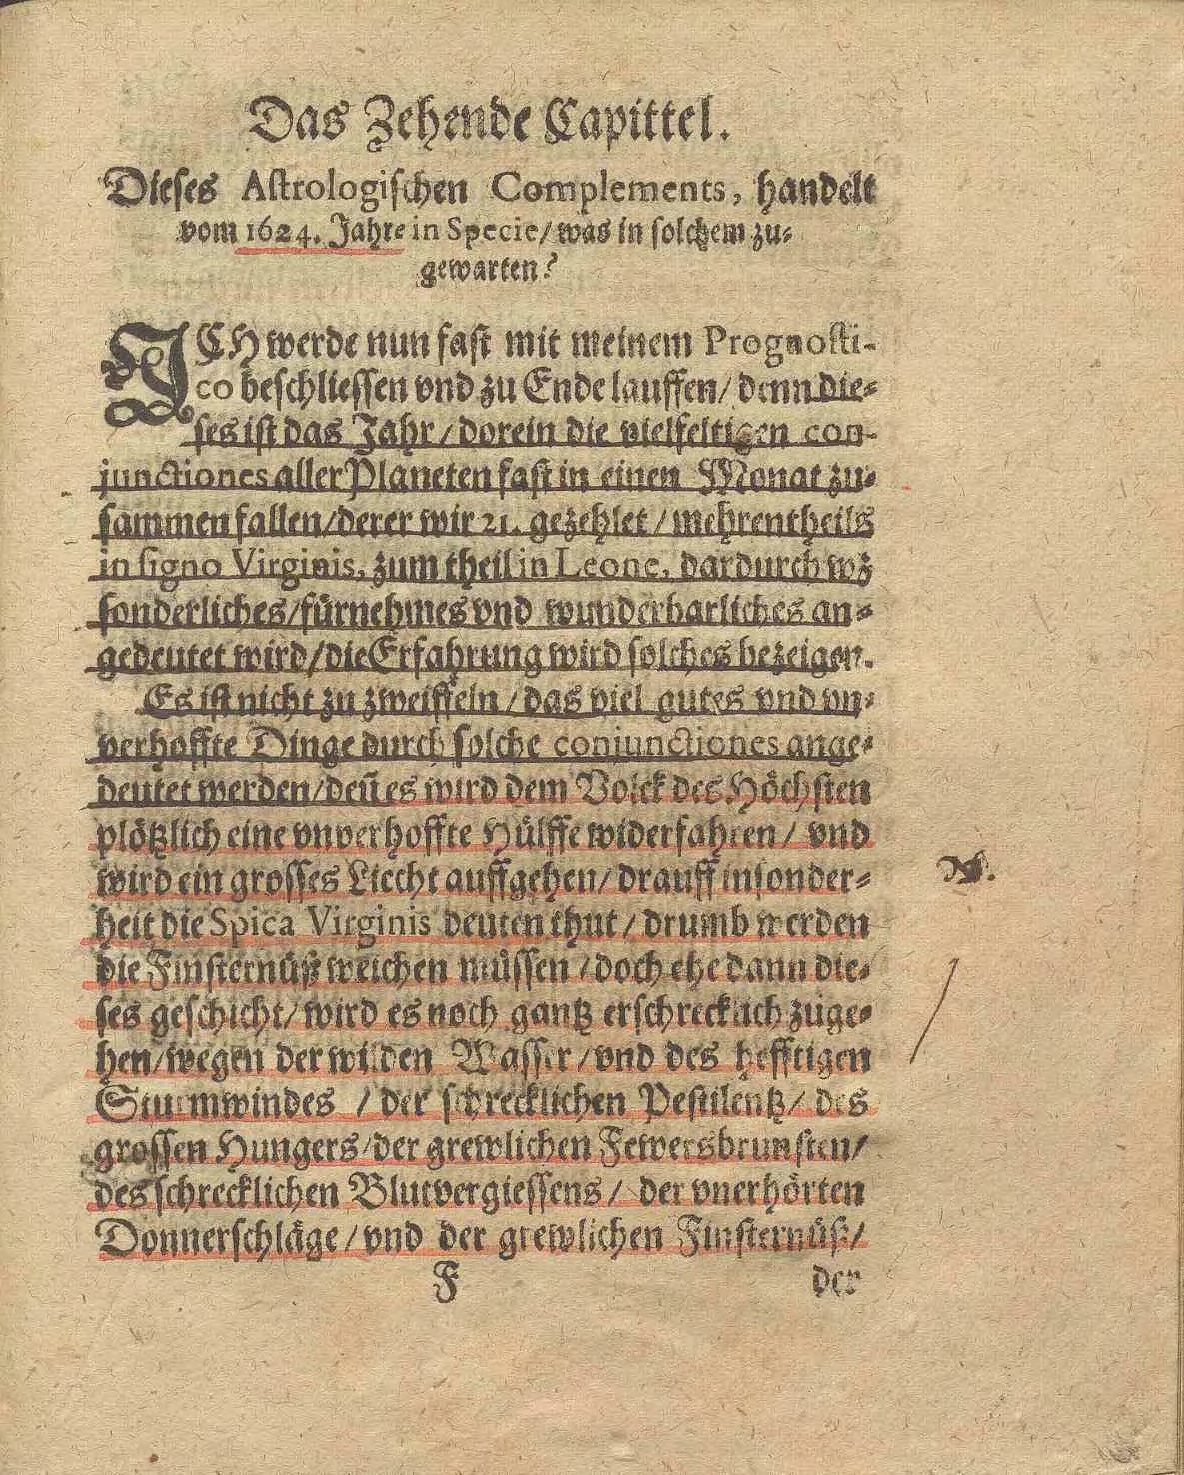 Das Zehende Capittel.
Dieses Astrologischen Complements, handelt
vom 1624. Jahre in Specie/ was in solchem zu⸗
gewarten?
ICH werde nun fast mit meinem Prognosti-
co beschliessen vnd zu Ende lauffen/ denn die⸗
ses ist das Jahr/ dorein die vielfeltigen con-
junctiones aller Planeten fast in einen Monat zu⸗
sammen fallen/ derer wir 21. gezehlet/ mehrentheils
in signo Virginis, zum theil in Leone, dardurch wz
sonderliches/ fürnehmes vnd wunderbarliches an⸗
gedeutet wird/ die Erfahrung wird solches bezeigen.
Es ist nicht zu zweiffeln/ das viel gutes vnd vn⸗
verhoffte Dinge durch solche conjunctiones ange⸗
deutet werden/ deñ es wird dem Volck des Höchsten
plötzlich eine vnverhoffte Hülffe widerfahren/ vnd
wird ein grosses Liecht auffgehen/ drauff insonder⸗
heit die Spica Virginis deuten thut/ drumb werden
die Finsternüß weichen müssen/ doch ehe dann die⸗
ses geschicht/ wird es noch gantz erschrecklich zuge⸗
hen/ wegen der wilden Wasser/ vnd des hefftigen
Sturmwindes / der schrecklichen Pestilentz/ des
grossen Hungers/ der grewlichen Fewersbrunsten/
des schrecklichen Blutvergiessens/ der vnerhörten
Donnerschläge/ vnd der grewlichen Finsternüß/
F der